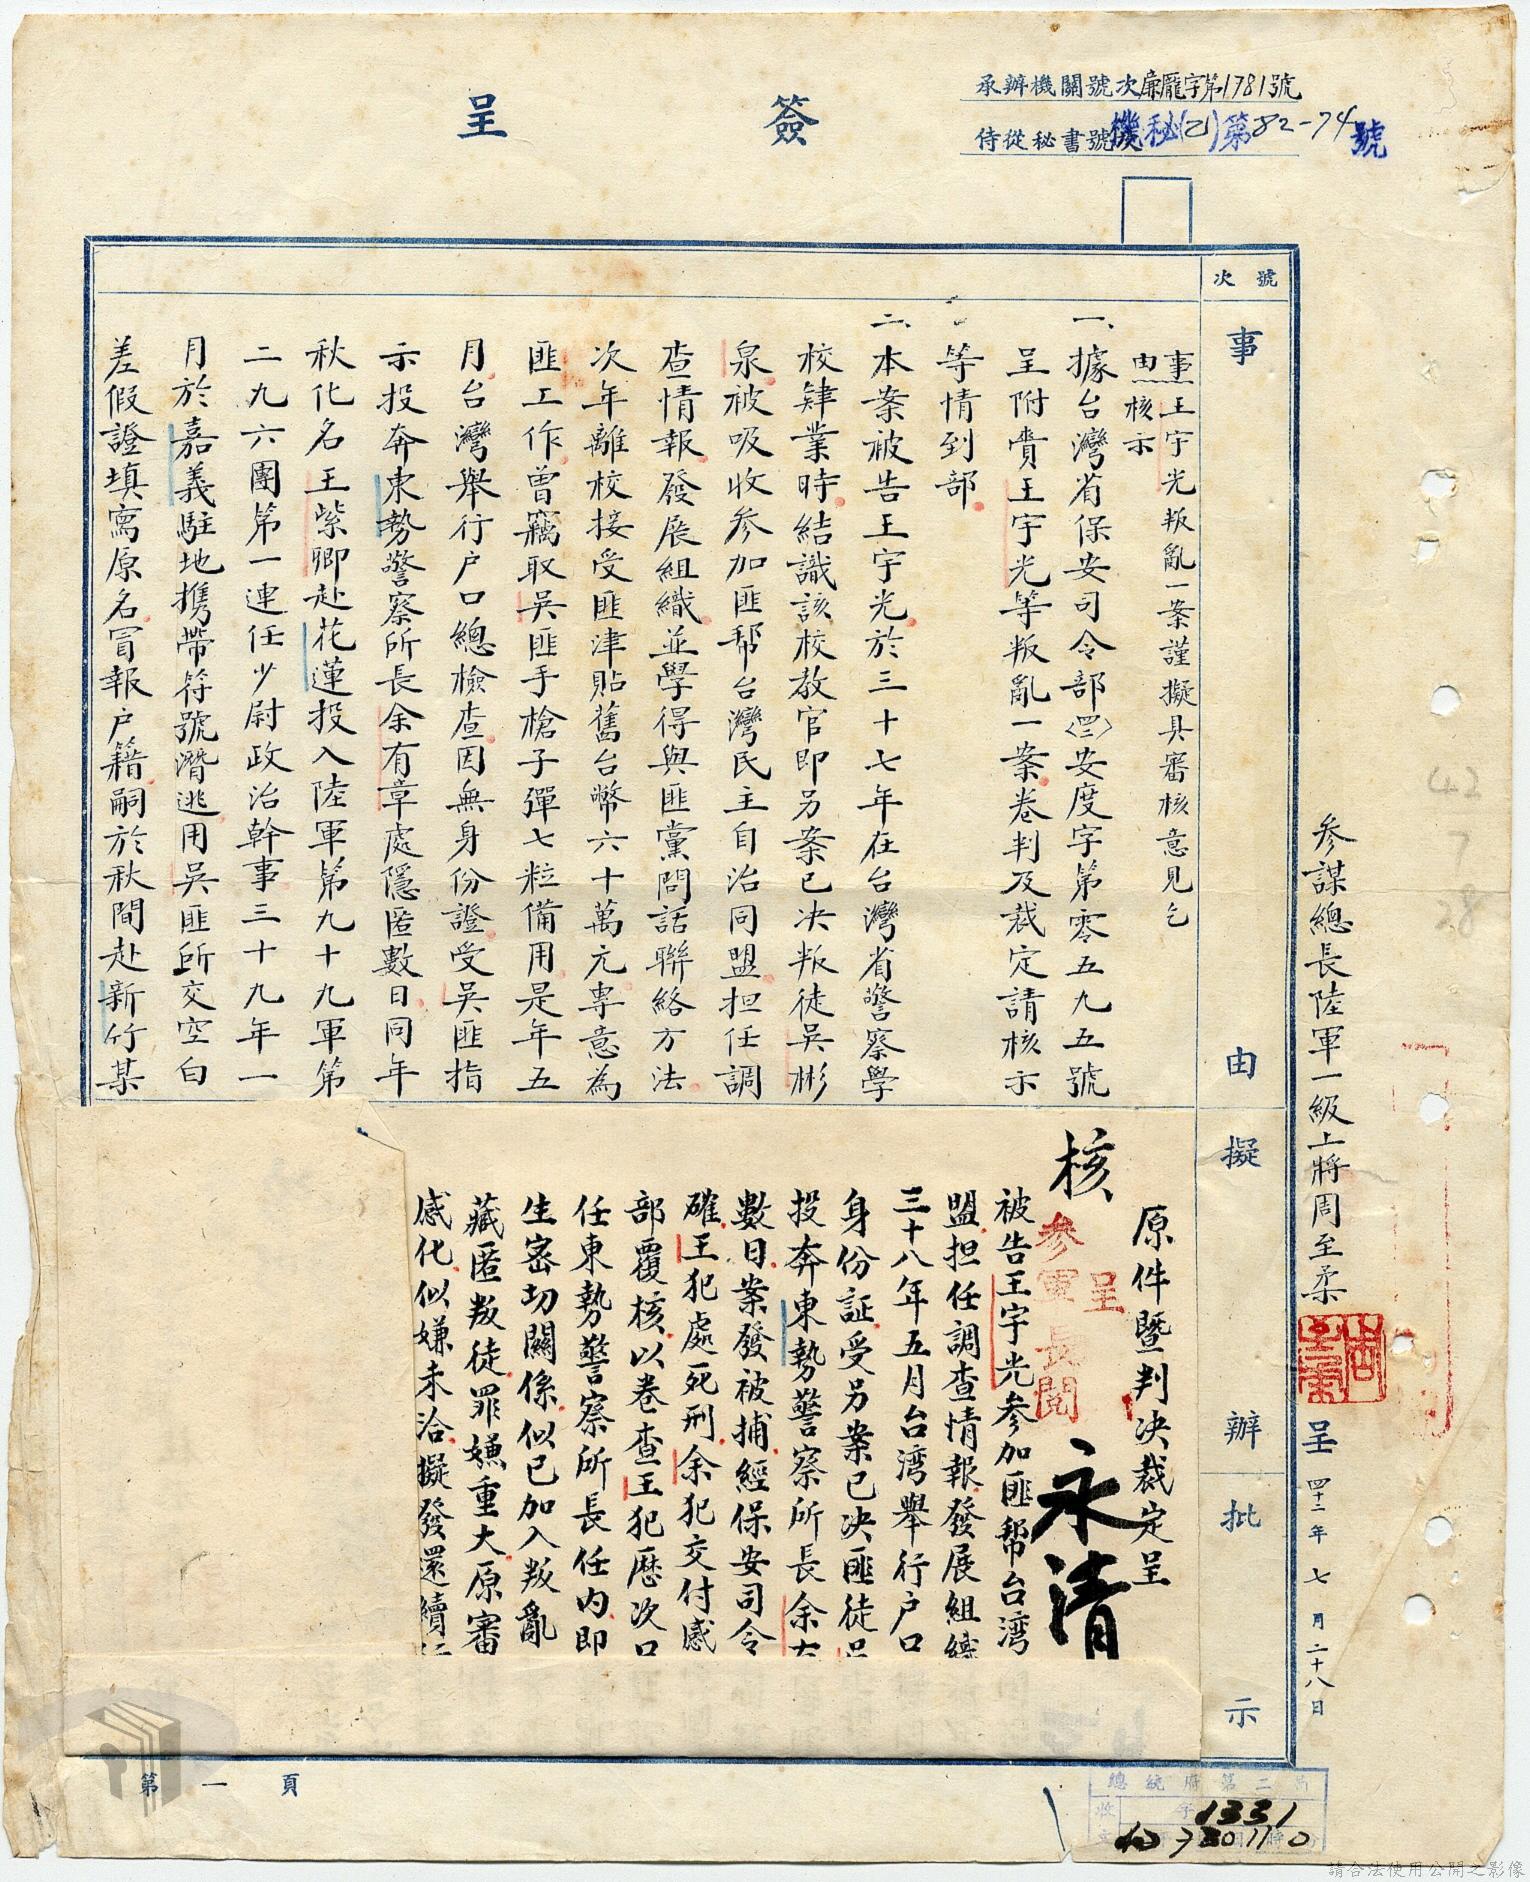 簽呈
承辦機關號次廉龐字第1781號
侍從秘書號次機秘(乙)第82-74號
號次
事由
擬辦
批示
參謀總長陸軍一級上將周至柔
呈 四十二年七月二十八日
事由 王宇光叛亂一案謹擬具審核意見乞
核示
一、據台灣省保安司令部(四二)安度字第零五九五號
呈附賫王宇光等叛亂一案卷判及裁定請核示
等情到部
二、本案被告王宇光於三十七年在台灣省警察學
校肄業時結識該校教官即另案已決叛徒吳彬
泉被吸收參加匪幫台灣民主自治同盟担任調
查情報發展組織並學得與匪黨問話聯絡方法
次年離校接受匪津貼舊台幣六十萬元專意為
匪工作曾竊取吳匪手槍子彈七粒備用是年五
月台灣舉行户口總檢查因無身份證受吳匪指
示投奔東勢警察所長余有章處隱匿數日同年
秋化名王紫卿赴花蓮投入陸軍第九十九軍第
二九六團第一連任少尉政治幹事三十九年一
月於嘉義駐地携帶符號潛逃用吳匪所交空白
差假證填寫原名冒報户籍嗣於秋間赴新竹某
原件暨判決裁定呈
核
呈
參軍長閱
永清
被告王宇光參加匪帮台湾
盟担任調查情報發展組織
三十八年五月台湾舉行户口
身份証受另案已決匪徒吳
投奔東勢警察所長余有
數日案發被捕經保安司令
確王犯處死刑余犯交付感
部覆核以卷查王犯歷次口
任東勢警察所長任內即
生密切關係似已加入叛亂
藏匿叛徒罪嫌重大原審
感化似嫌未洽擬發還續
第一頁
總統府第二局
收文
字
1331
42 7 30 11 0
42
7
28
請合法使用公開之影像